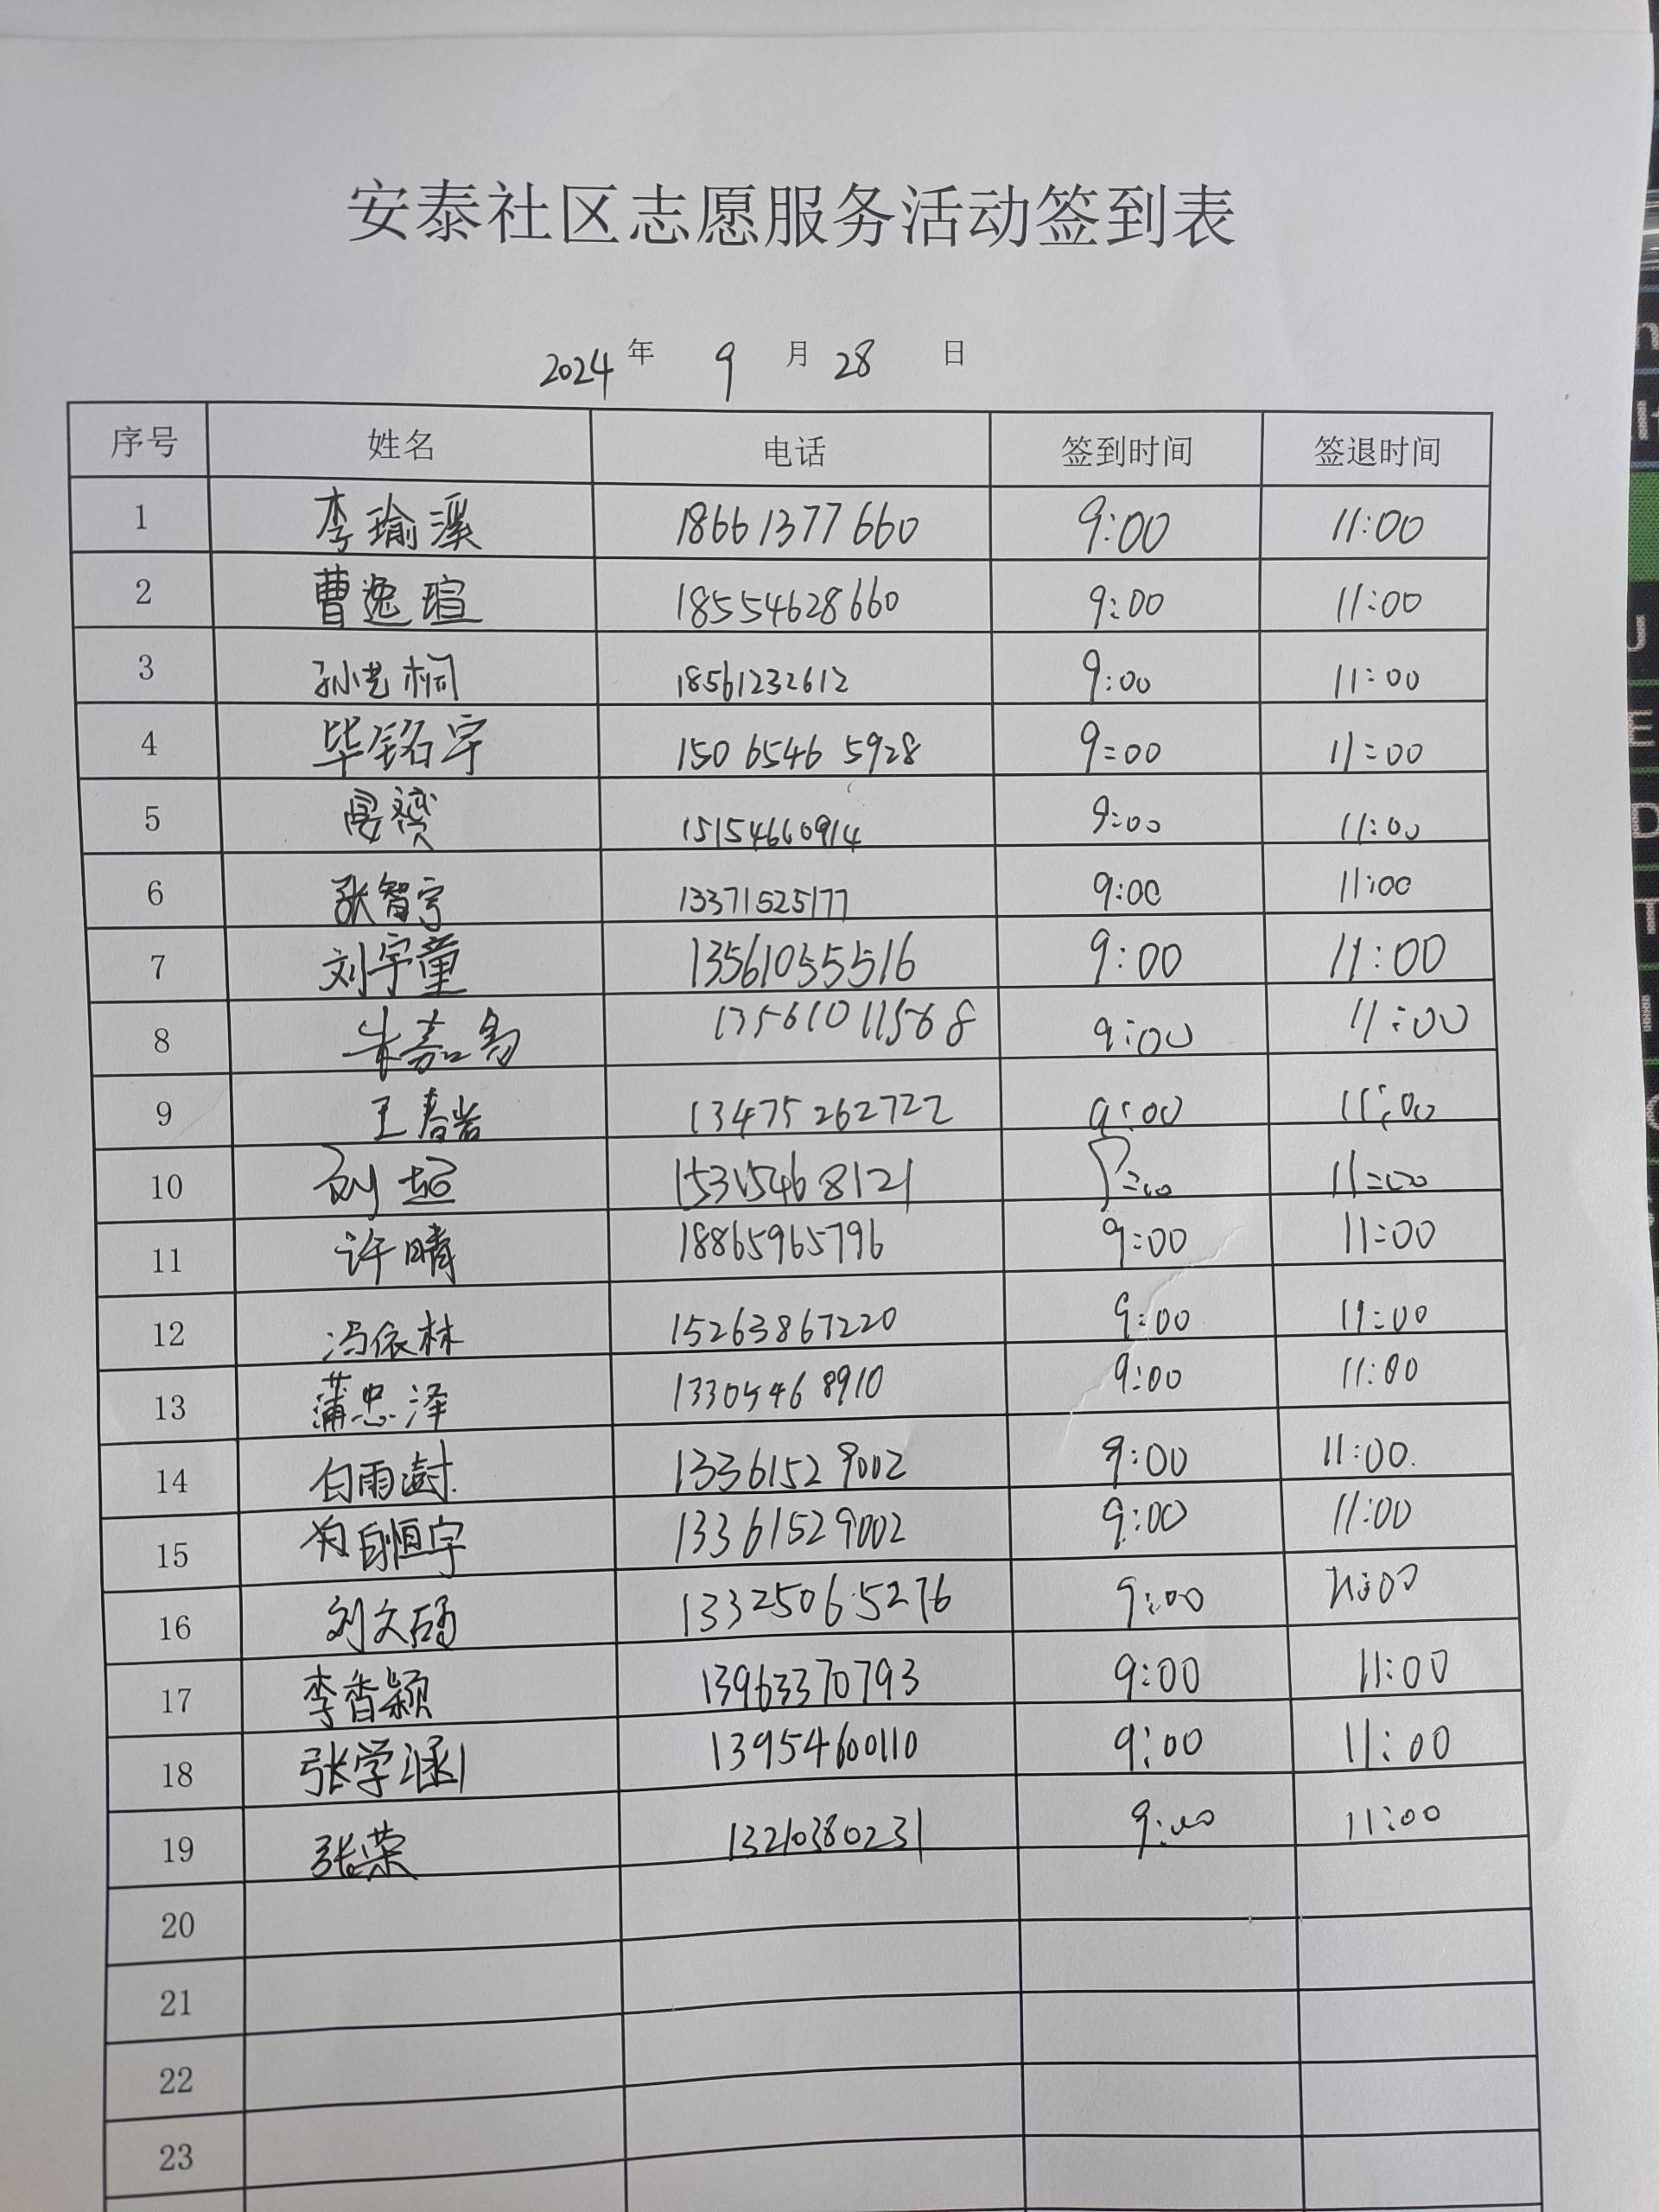 安泰社区志愿服务活动签到表
2024 年 9 月 28 日
序号 姓名 电话 签到时间 签退时间
1 李瑜溪 18661377660 9:00 11:00
2 曹逸瑄 18554628660 9:00 11:00
3 孙艺桐 18561232612 9:00 11:00
4 毕铭宇 150 6546 5928 9:00 11:00
5 15154660914 9:00 11:00
6 张智宇 13371525177 9:00 11:00
7 刘宇童 13561055516 9:00 11:00
8 朱嘉 13561011568 9:00 11:00
9 王春岩 13475262722 9:00 11:00
10 刘 15315468121 9:00 11:00
11 许晴 18865965796 9:00 11:00
12 冯依林 15263867220 9:00 11:00
13 蒲忠泽 13305468910 9:00 11:00
14 白雨澍 13361529002 9:00 11:00
15 白恒宇 13361529002 9:00 11:00
16 刘文硕 13325065276 9:00 11:00
17 李香颖 13963370793 9:00 11:00
18 张学涵 13954600110 9:00 11:00
19 张荣 13210380231 9:00 11:00
20
21
22
23